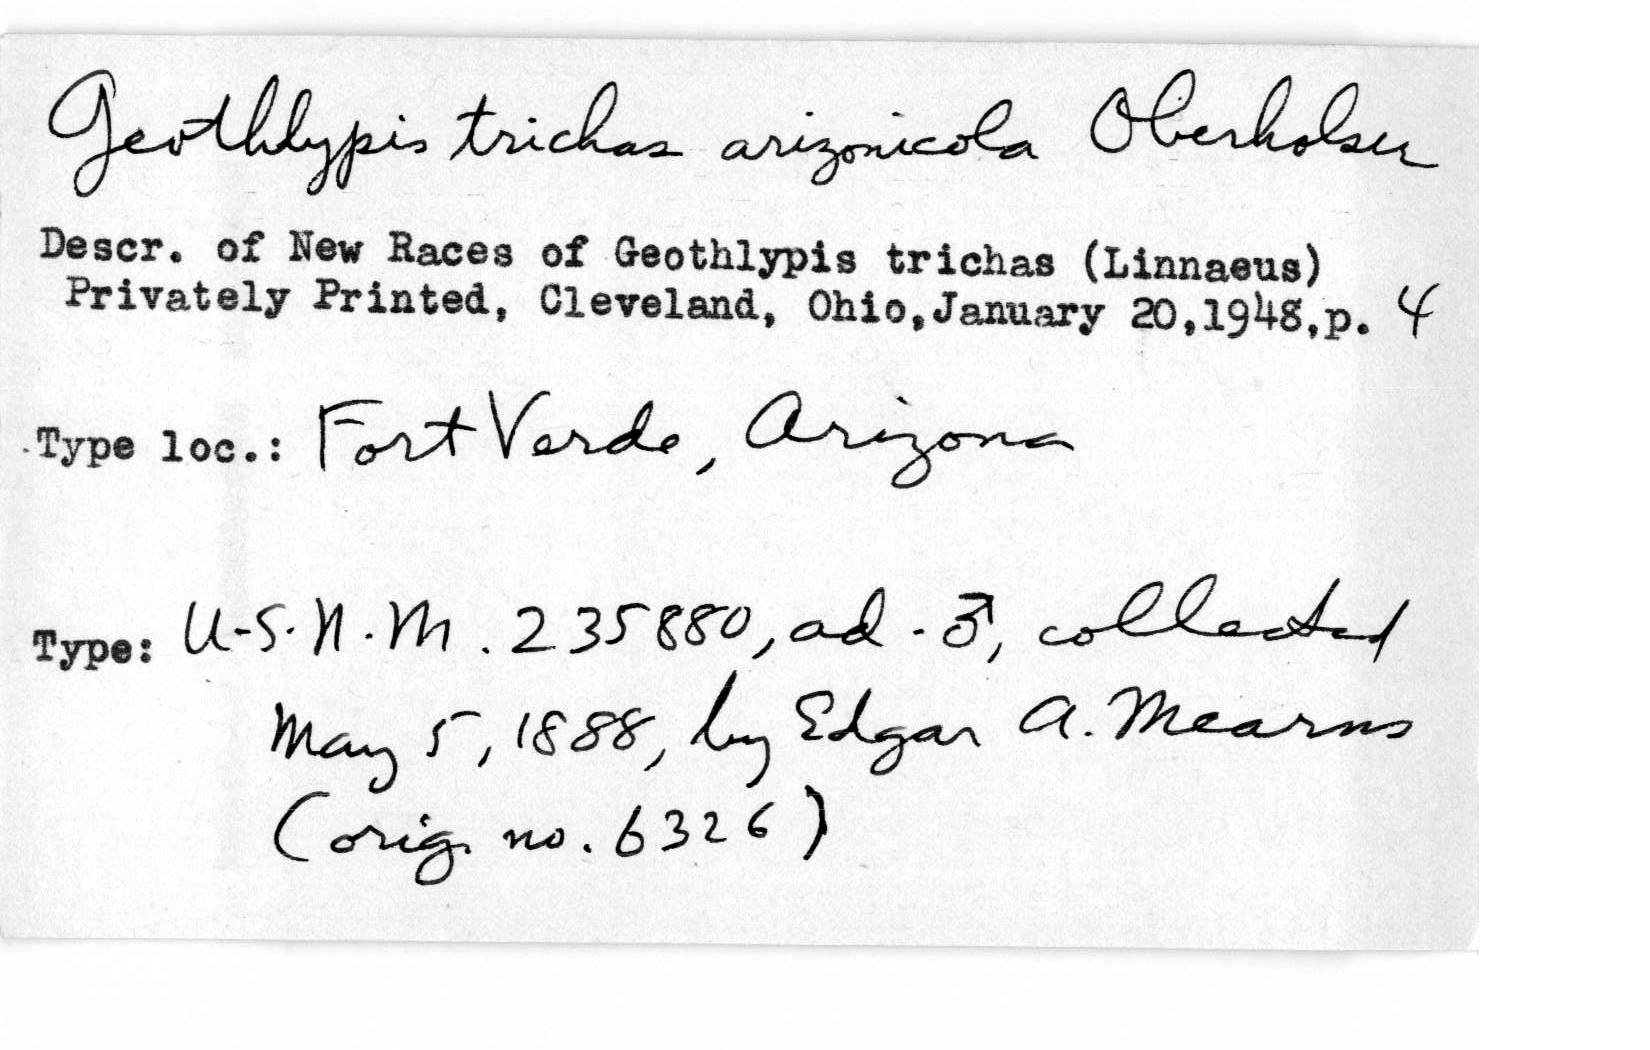 Geothlypis trichas arizonicola Oberholser
Descr. of New Races of Geothlypis trichas (Linnaeus)
Privately Printed, Cleveland, Ohio, January 20, 1948, p. 4
Type loc.: Fort Verde, Arizona
Type: U.S.N.M. 235880, ad. ♂, collected
May 5, 1888, by Edgar A. Mearns
(orig. no. 6326)